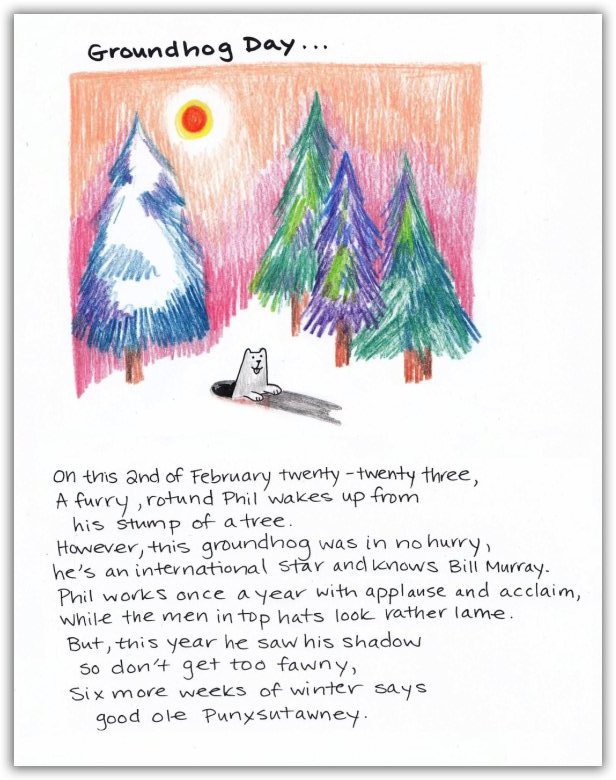 Groundhog Day...
On this 2nd of February twenty-twenty three,
A furry, rotund Phil wakes up from
his stump of a tree.
However, this groundhog was in no hurry,
he's an international star and knows Bill Murray.
Phil works once a year with applause and acclaim,
while the men in top hats look rather lame.
But, this year he saw his shadow
so don't get too fawny,
Six more weeks of winter says
good ole Punxsutawney.